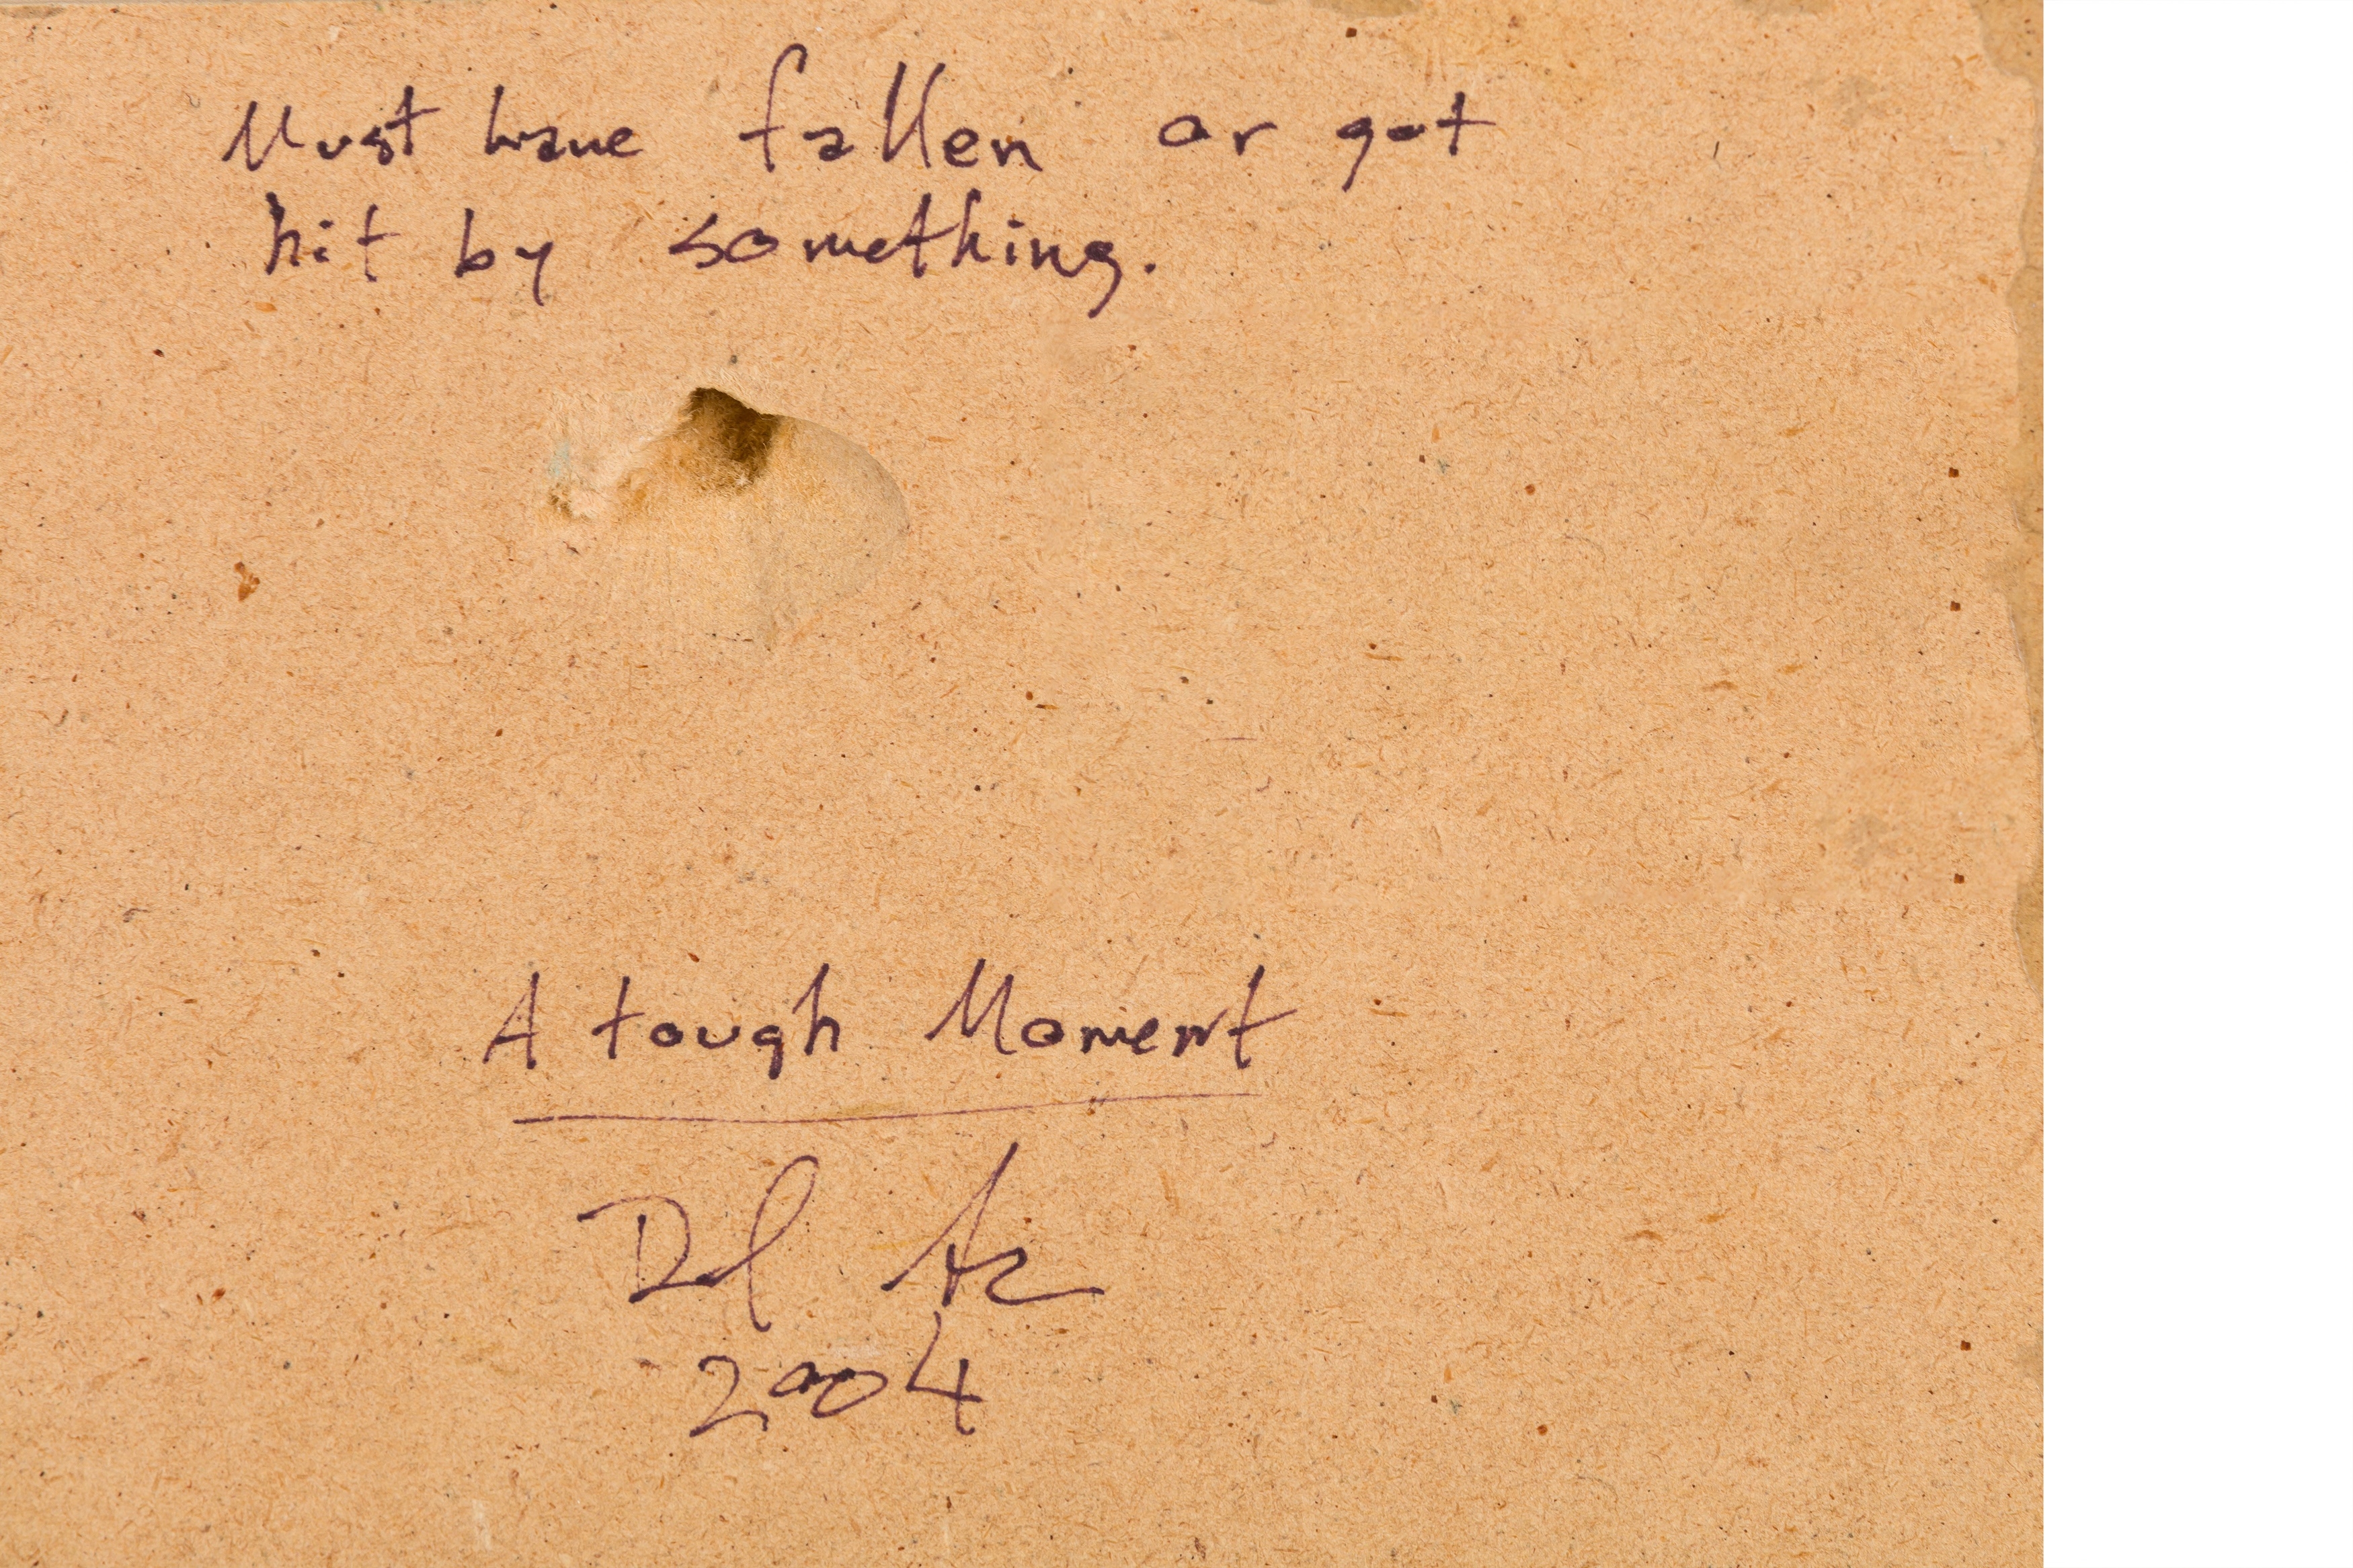 Must have fallen or got
hit by something.
A tough Moment
2004